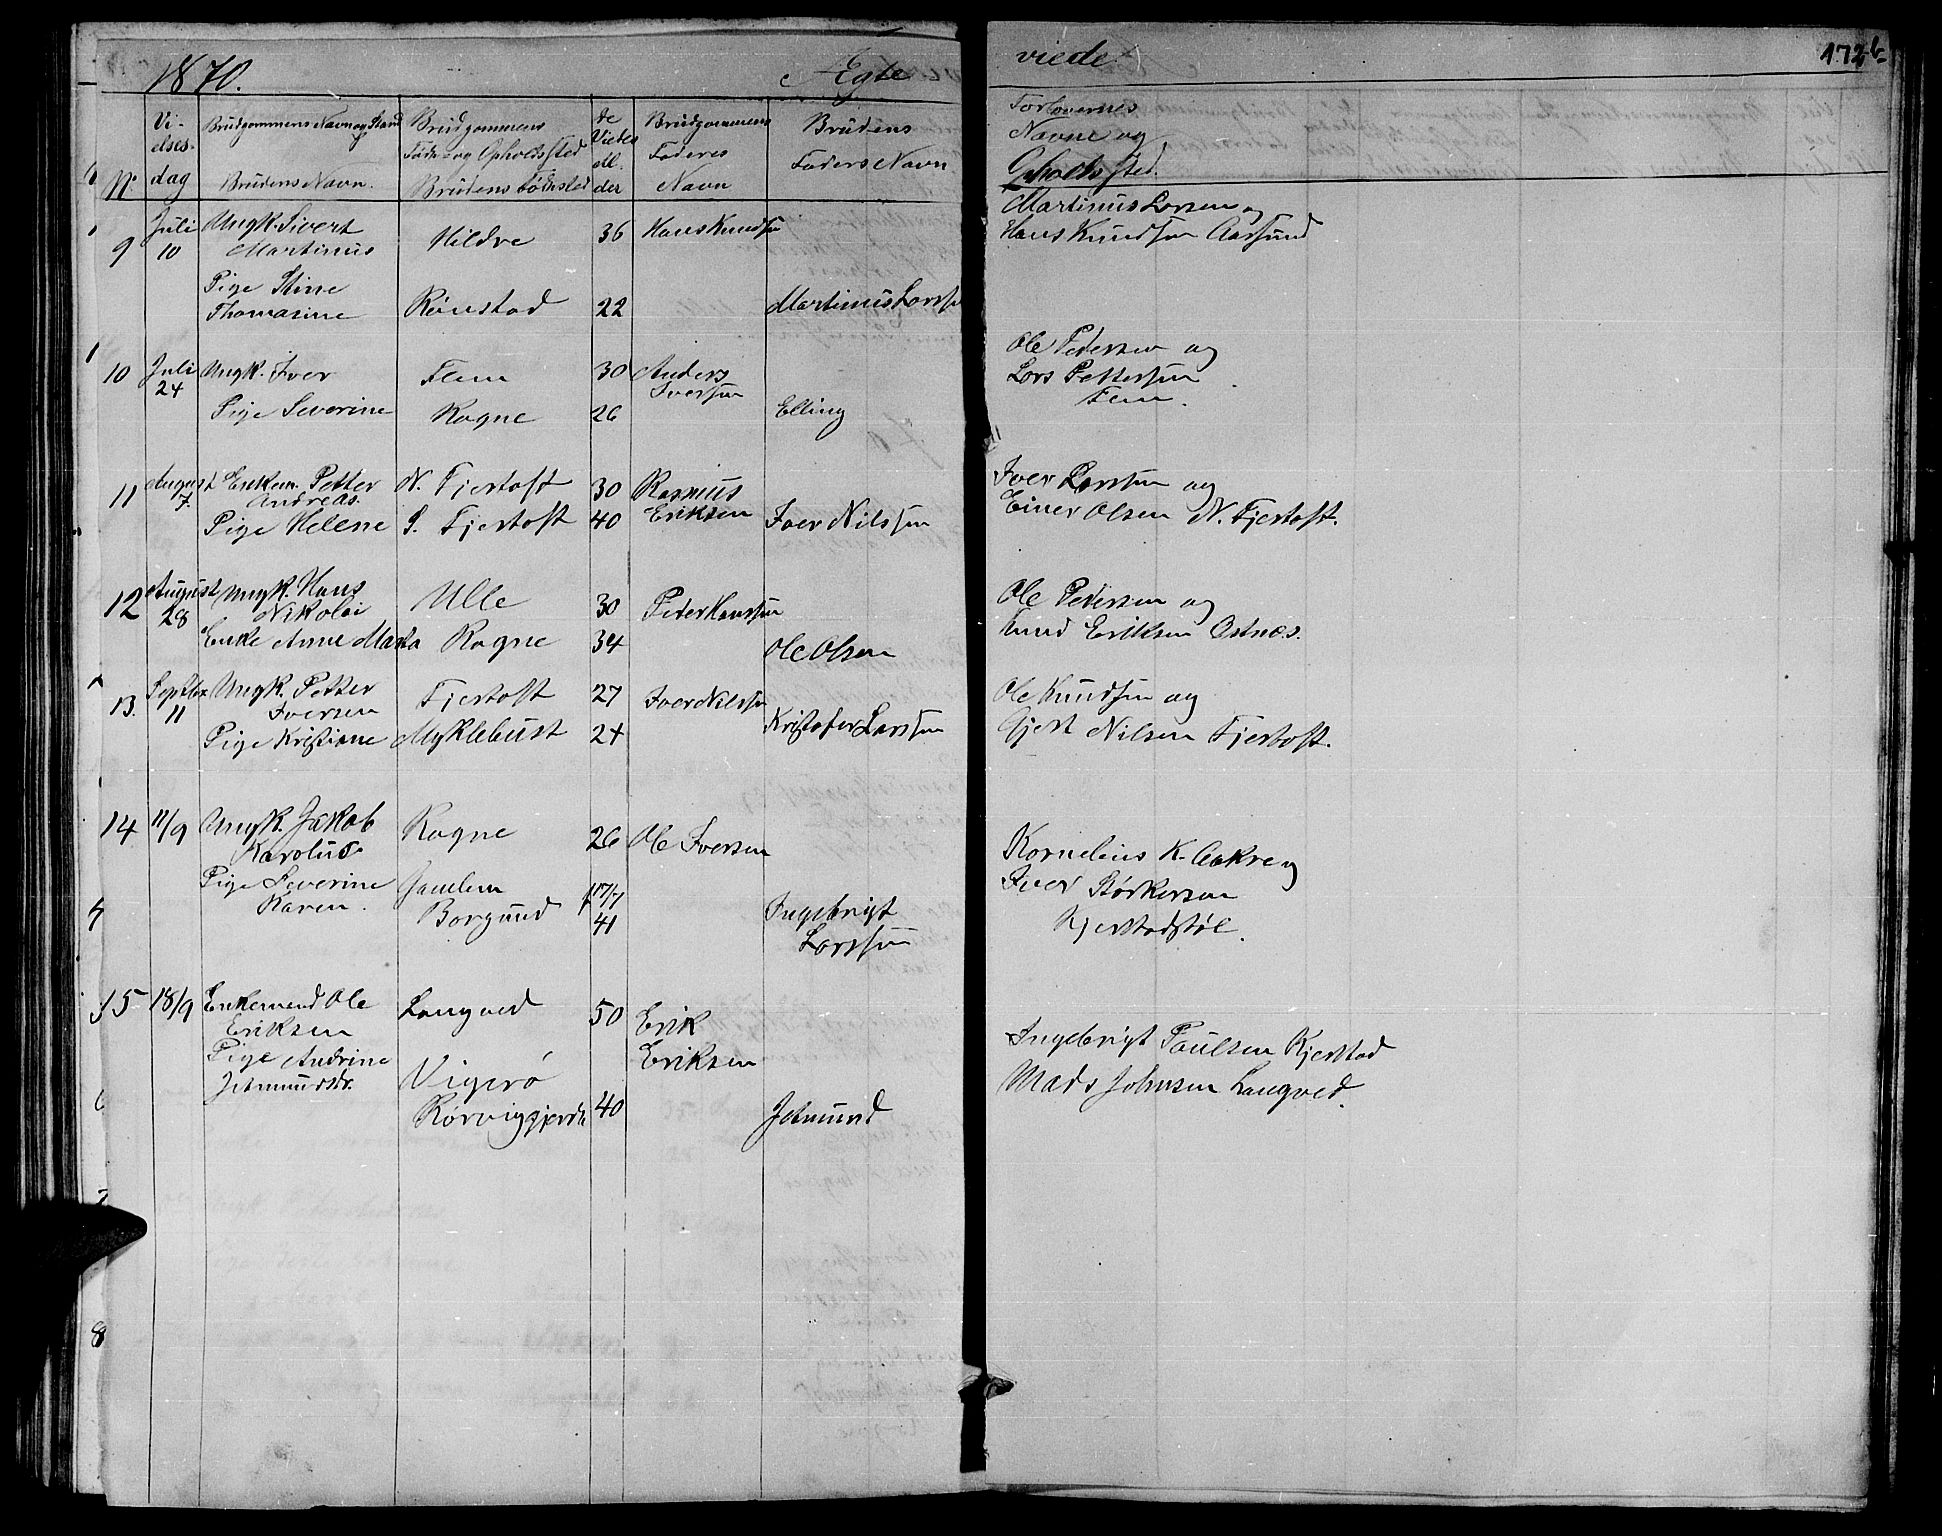 1870. Ægte viede 172b
No Vi-elses-dag
Brudgommens Navn og Stand
Brudens Navn.
Brudgommens Føde- og Opholdssted
Brudens Fødested
De Viedes Alder
Brudgommens Faders Navn
Brudens Faders Navn
Forlovernes Navne og Opholdssted.
9 Juli 10 Ungk. Sivert Martinus Hildre 36 Hans Knudsen
Pige Stine Thomasine Rønstad 22 Martinus Larssen
Martinus Larsen og
Hans Knudsen Aarsund
10 Juli 24 Ungk. Iver Flem 30 Anders Iversen
Pige Severine Rogne 26 Elling
Ole Pedersen og
Lars Pettersen
Flem.
11 August 7. Enkem. Petter Andreas. N. Fjertoft 30 Rasmus Eriksen
Pige Helene S. Fjertoft 40 Iver Nilssen
Iver Larssen og
Einer Olsen N. Fjertoft.
12 August 28 Ungk. Hans Nikolai Ulle 30 Peter Hanssen
Enke Anne Marta Rogne 34 Ole Olsen
Ole Pedersen og
Knud Eriksen Østnæs.
13. Septbr 11 Ungk. Petter Iversen Fjertoft 27 Iver Nilssen
Pige Kristiane Myklebust 24 Kristofer Larssen
Ole Knudsen og
Gjert Nilsen Fjertoft.
14 11/9 Ungk. Jakob Karolus Rogne 26 Ole Iversen
Pige Severine Karen. Borgund 17/7 41 Ingebrigt Larssen
Kornelius K. Aakre og
Iver Størkersen
Kjerstadstøl.
15 18/9 Enkemand Ole Eriksen Langved 50 Erik Eriksen
Pige Andrine Jetmundsdr. Vigerø
Rørviggjerde 40 Jetmund
Ingebrigt Paulsen Kjerstad
Mads Johnsen Langved.